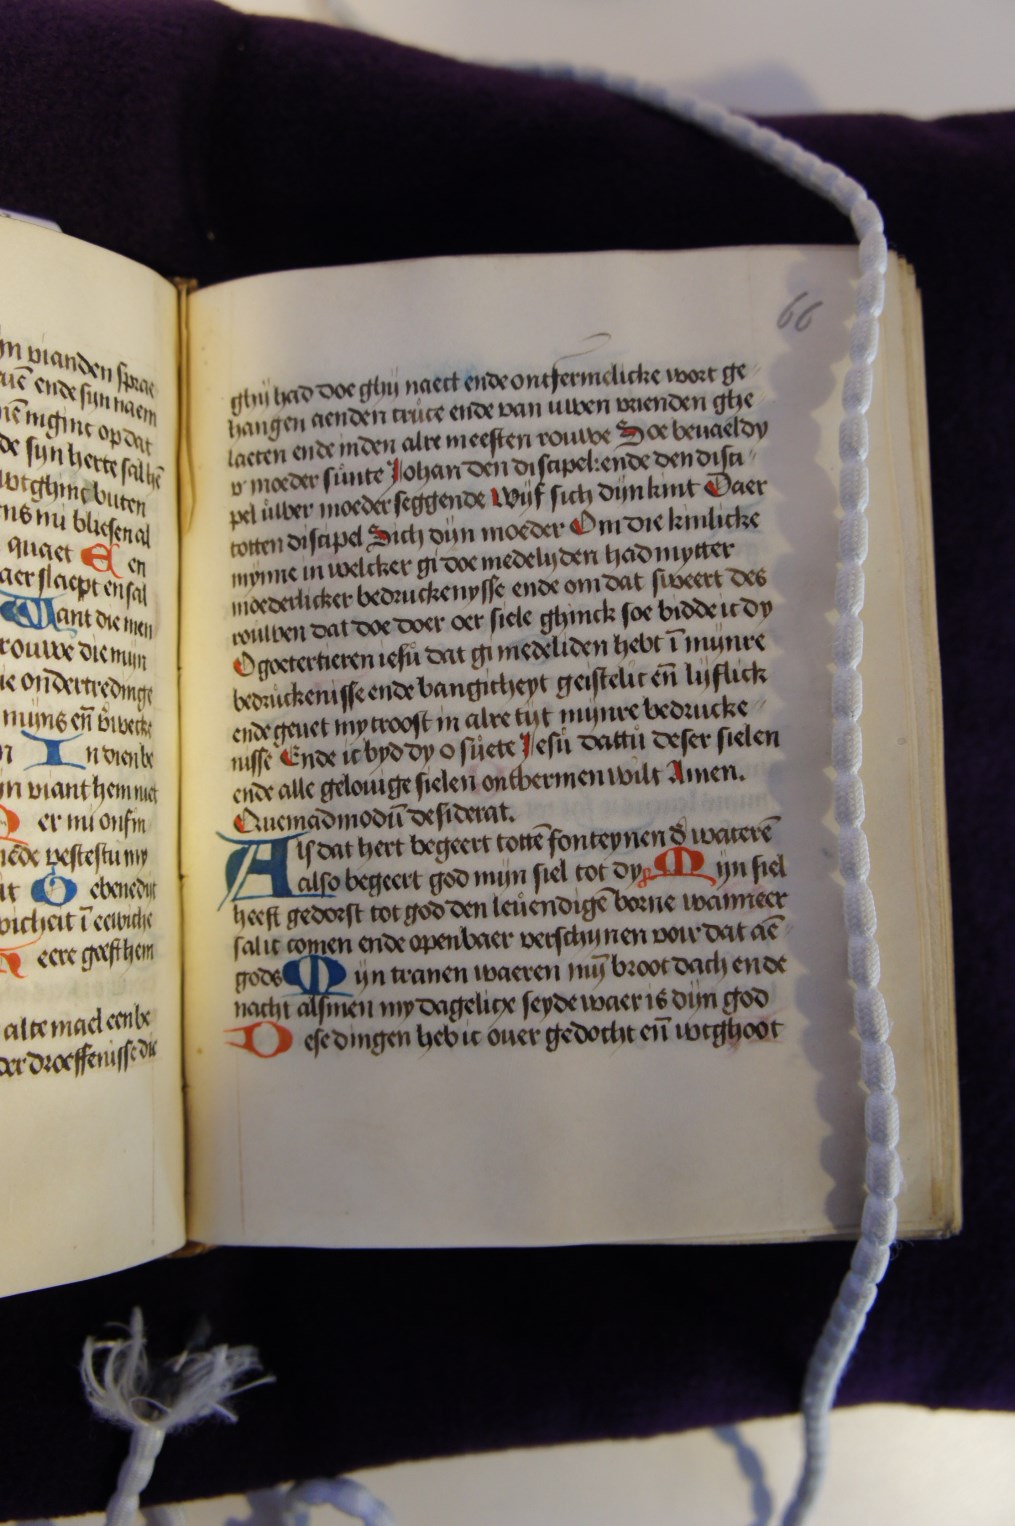 jn vianden sprae
uē ende sijn naem
nē nigint op dat
de sijn herte sal hē
wtghinc buten
ns nu bliesen al
quaet E en
aer slaept en sal
Want die men
rouwe die mijn
ie ondertredinge
mijns en̄
n In dien be
jn viant hem niet
er mi onfin
it O ebenedijt
vicheit ī eewiche
eere geeft hem
alte mael een be
der droeffenisse die
66
ghij had doe ghij naect ende ontfermelicke wort ge
hangen aenden cruce ende van uwen vrienden ghe
laeten ende inden alre meesten rouwe Soe bevaeldy
v moeder sunte Johan den discipel: ende den disci
pel uwer moeder seggende Wijf sich dijn kint Daer
totten discipel Sich dijn moeder Om die kinlicke
mynne in welcker gi doe medelyden had mytter
moederlicker bedruckenysse ende om dat sweert des
rouwen dat doe doer oer siele ghinck soe bidde ic dy
O goetertieren iesu dat gi medeliden hebt ī mijnre
bedruckenisse ende bangicheyt geistelic en̄ lijflick
ende gevet my troost in alre tijt mijnre bedrucke
nisse Ende ic byd dy o suete Jesu dattu deser sielen
ende alle gelouige sielen ontbermen wilt Amen.
Quemadmodū desiderat.
Als dat hert begeert totte fonteynen d̄ wateren̄
also begeert god mijn siel tot dy Mijn siel
heeft gedorst tot god den levendigē borne wanneer
sal ic comen ende openbaer verschijnen voir dat aē
gods Mijn tranen waeren mij̄ broot dach ende
nacht alsmen my dagelicx seyde waer is dijn god
Dese dingen heb ic over gedocht en̄ wtghoot